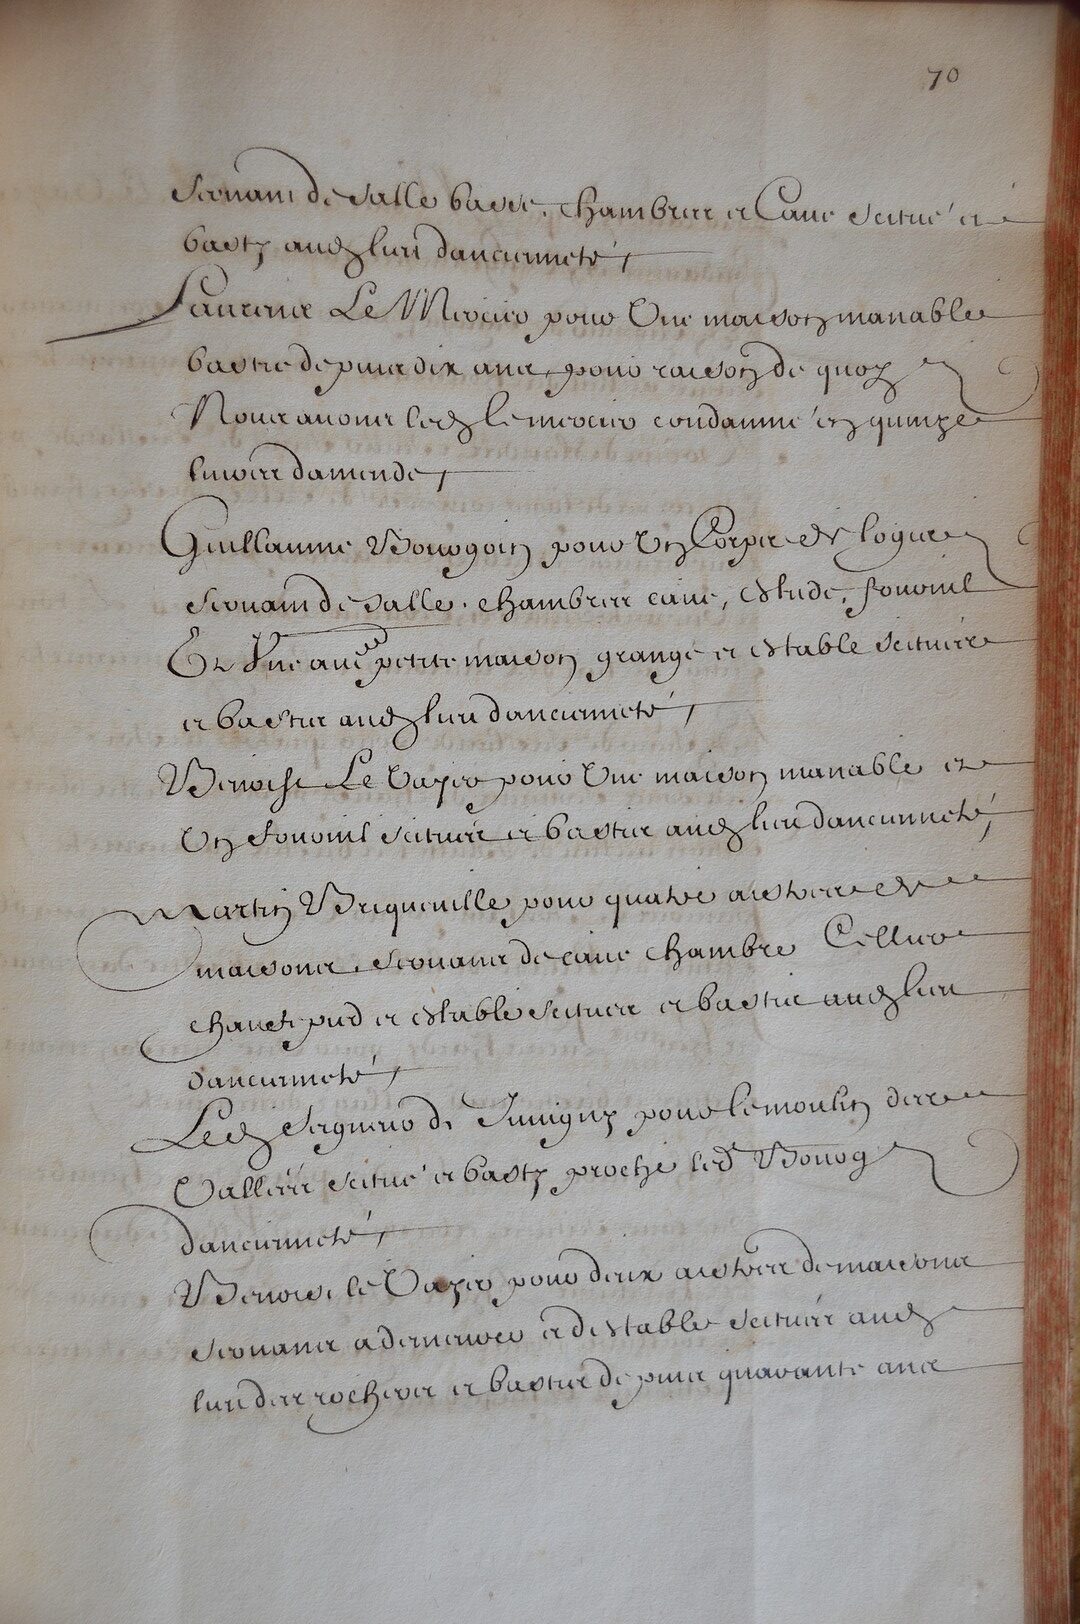 70
servant de salle basse, chambres et Cave scitué et
basty aud lieu dancienneté,
Laurens Le Mercier pour Une maison manable
bastie depuis dix ans, pour raison de quoy
Nous avons led le mercier condamné en quinze
livres damende,
Guillaume Bourgoin pour Un Corps de logis
servant de salle, chambres cave, estude, fournil
Et Une autre petite maison grange et estable scituées
et basties aud lieu dancienneté,
Benoist Le Vayer pour Une maison manable et
Un fournil scitués et bastis aud lieu dancienneté,
Martin Briqueville pour quatre aistres de
maisons, servans de cave chambre Cellier
chartepied et estable scitués et bastis aud lieu
dancienneté,
Led seigneur de Juvigny pour le moulin des
Vallées scitué et basty proche led Bourg
dancienneté,
Benois, le Vayer pour deux aistres de maisons
servans a demeurer et destable scitués aud
lieu des rochers et bastis depuis quarante ans